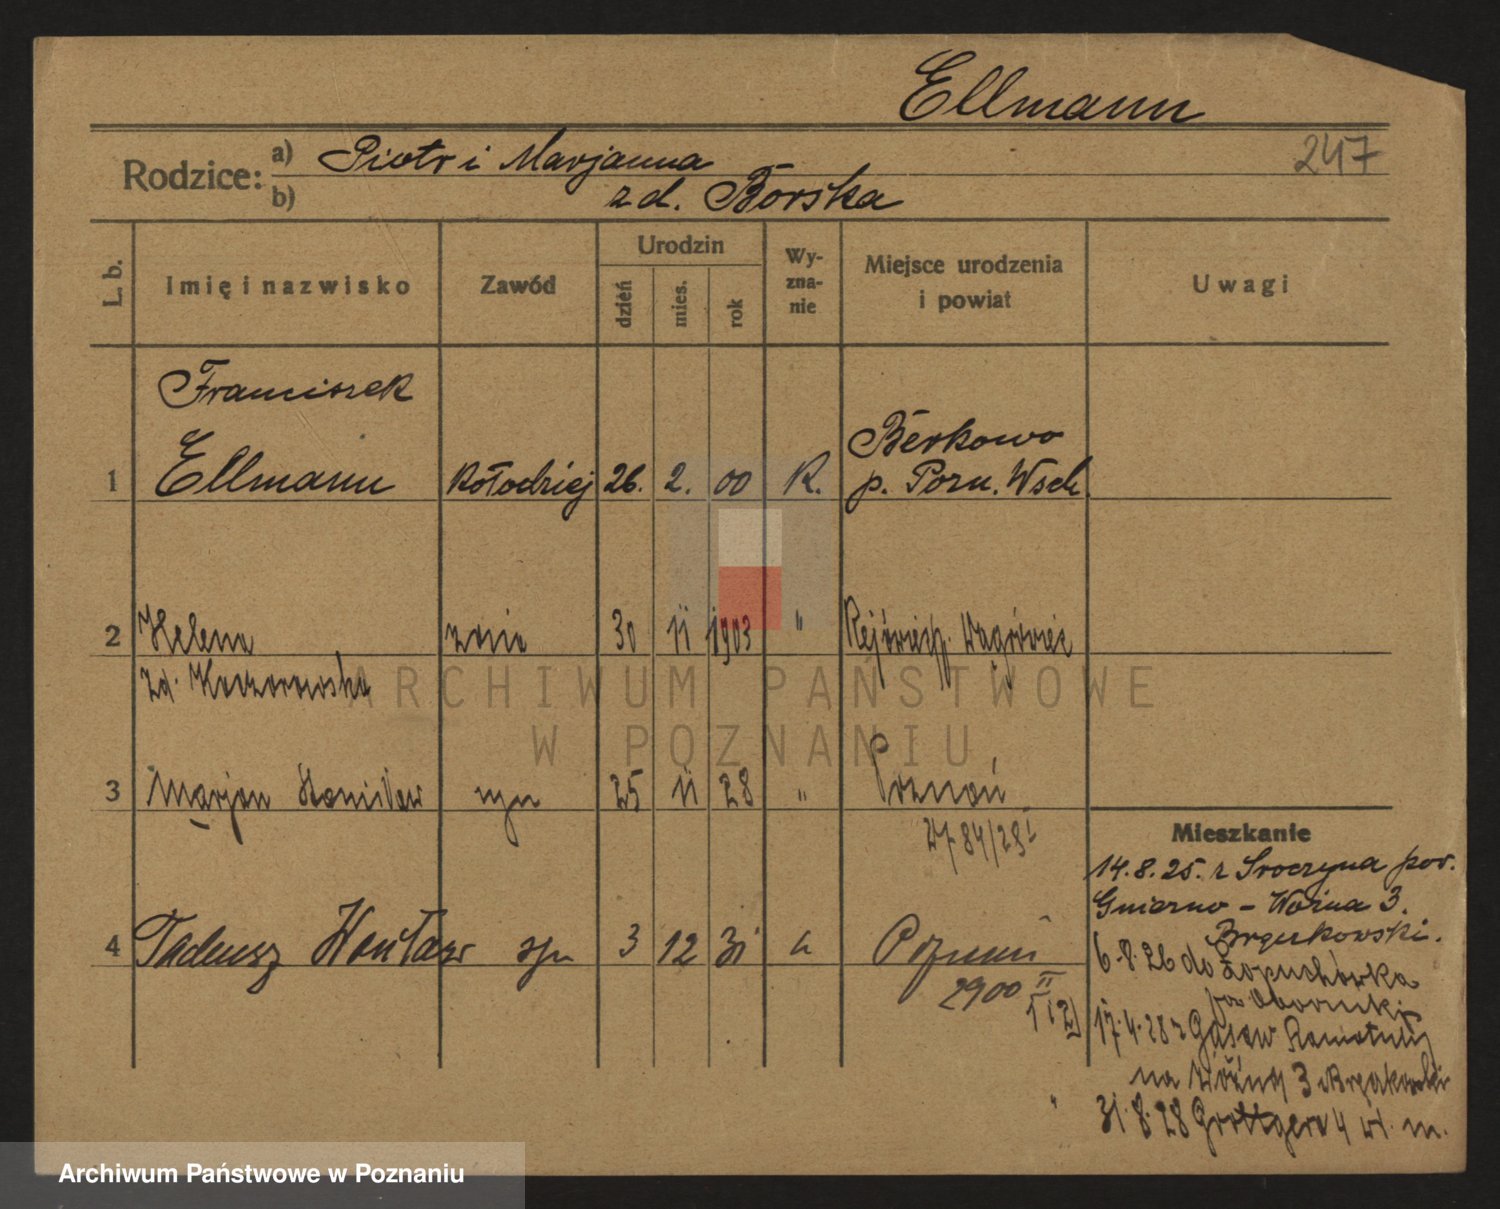 Ellmann
247
Rodzice: a) Piotr i Marjanna
b) zd. Borska
L. b.
Imię i nazwisko
Zawód
Urodzin
dzień
mies.
rok
Wy-
zna-
nie
Miejsce urodzenia
i powiat
Uwagi
Franciszek
1 Ellmann kołodziej 26. 2. 00 R. Berkowo
p. Pozn. Wsch.
2 Helena żona 30 11 1903 " p. Wągrówiec
zd. Kaczorowska
ARCHIWUM PAŃSTWOWE
W POZNANIU
3 Marjan Stanisław syn 25 11 28 " Poznań
84/28
4 Tadeusz Wacław syn 3 12 31 " Poznań
2900 II
Mieszkanie
14.8.25. z Sroczyna pow.
Gniezno - Woźna 3.
6.8.26 do Łopuchówka
pow Oborniki
17.4.28 z
na Woźną 3
31.8.28 Grottgera 4 wł. m.
Archiwum Państwowe w Poznaniu